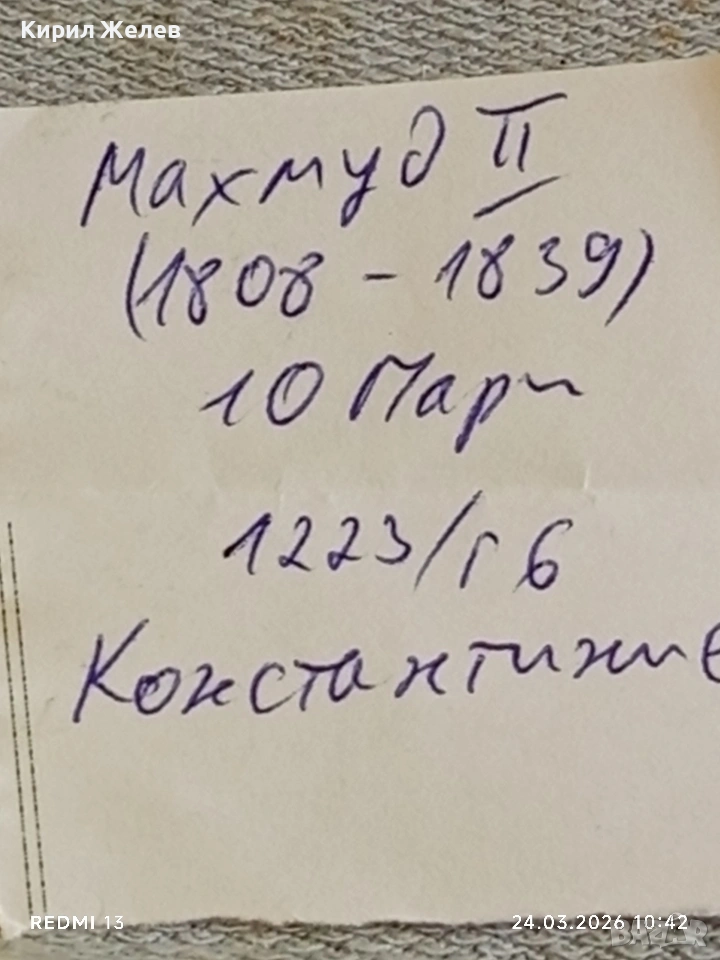 Кирил Желев
Махмуд II
(1808 - 1839)
10 Пари
1223/г 6
Константини
REDMI 13
24.03.2026 10:42
BAZAR